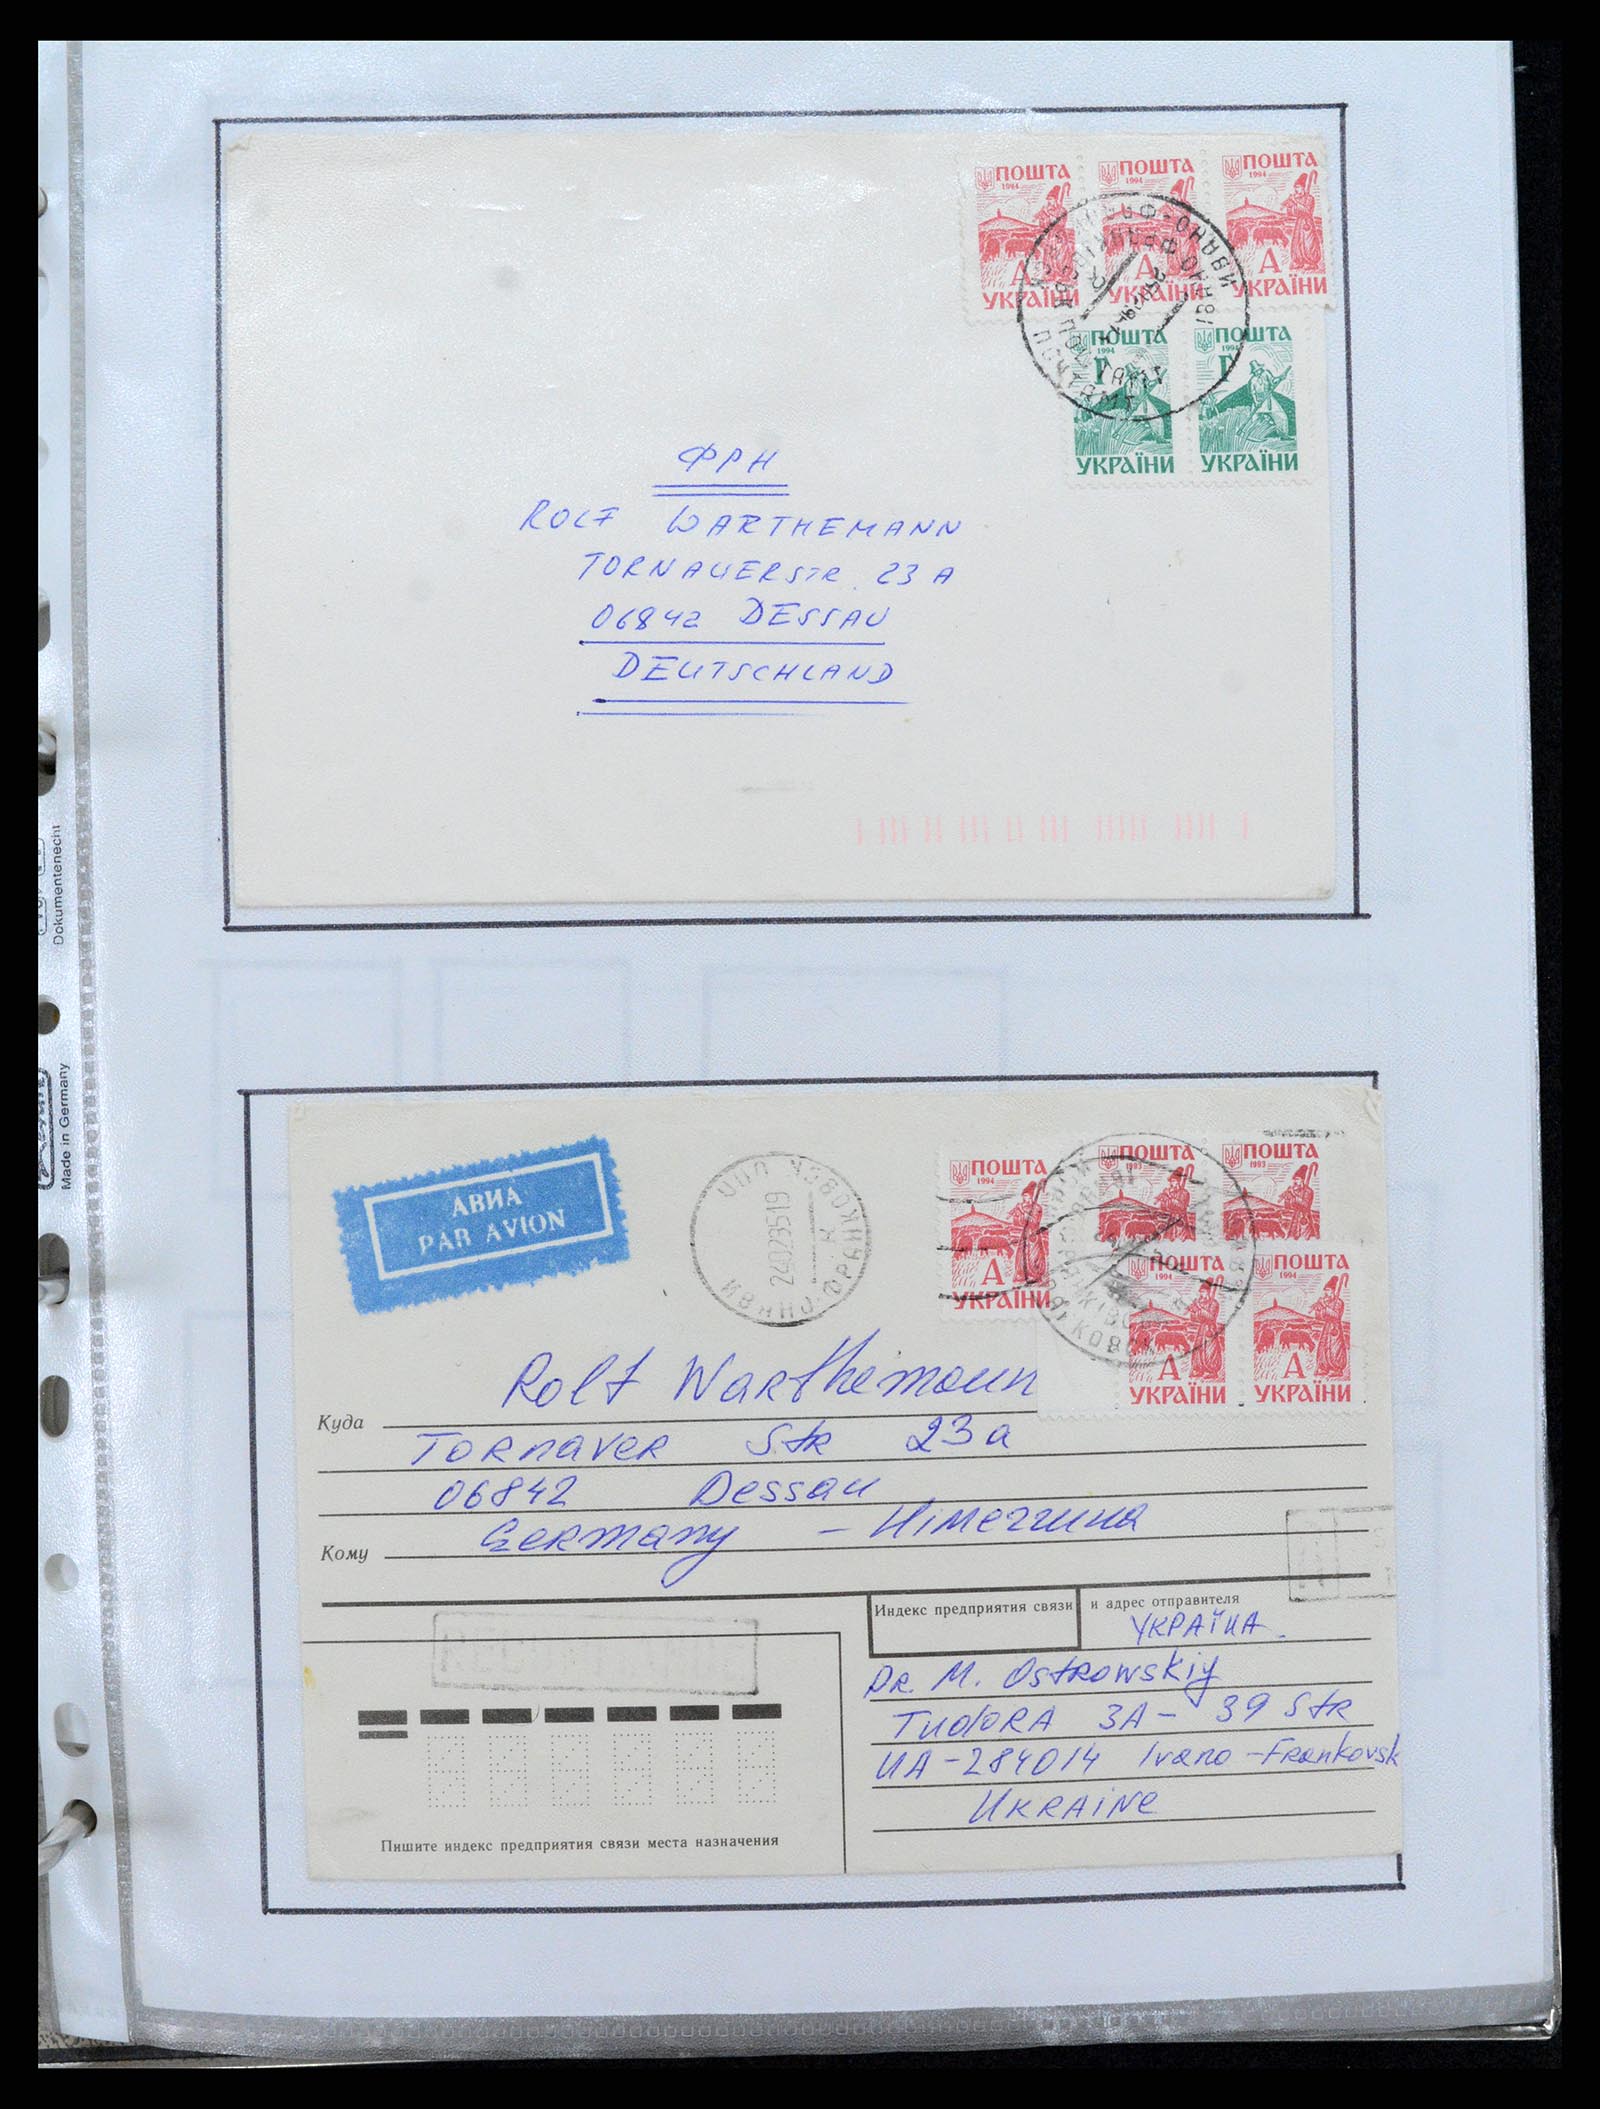 ПОШТА ПОШТА ПОШТА
1994 1994 1994
А А А
УКРАЇНИ УКРАЇНИ
ИВАНО-ФРАН
ПОЧТАМТ
ПОШТА ПОШТА
1994 1994
Г Г
УКРАЇНИ УКРАЇНИ
ФРН
ROLF WARTHEMANN
TORNAUERSTR. 23 A
06842 DESSAU
DEUTSCHLAND
Dokumentenecht
Made in Germany
АВИА
PAR AVION
24029519
ПОШТА ПОШТА ПОШТА
1994 1993 1993
А
УКРАЇНИ
ПОШТА ПОШТА
1994 1994
А А
УКРАЇНИ УКРАЇНИ
Rolf Warthemann
Куда
Tornaver Str 23a
06842 Dessau
Germany – Німеччина
Кому
Индекс предприятия связи и адрес отправителя
УКРАЇНА
Dr. M. Ostrowskiy
Tudora 3A – 39 Str
UA-284014 Ivano-Frankovsk
Ukraine
Пишите индекс предприятия связи места назначения